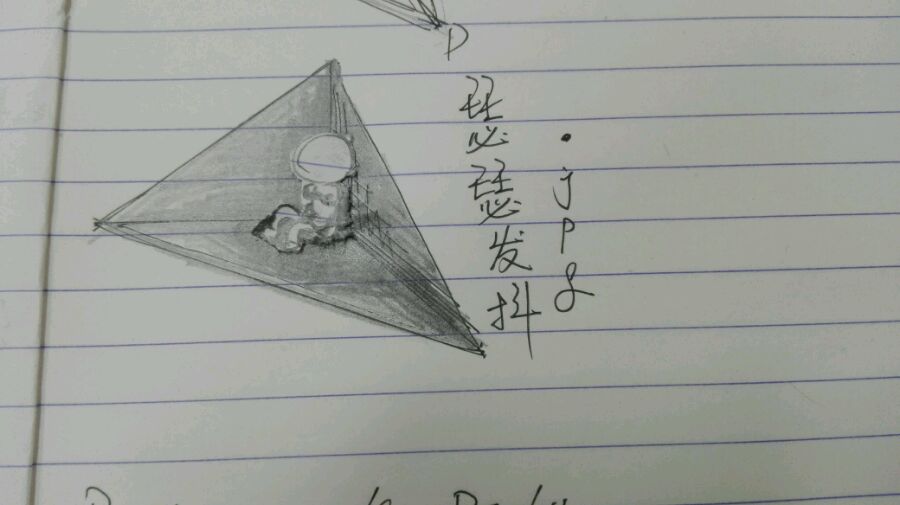 D
瑟瑟发抖
.jpg